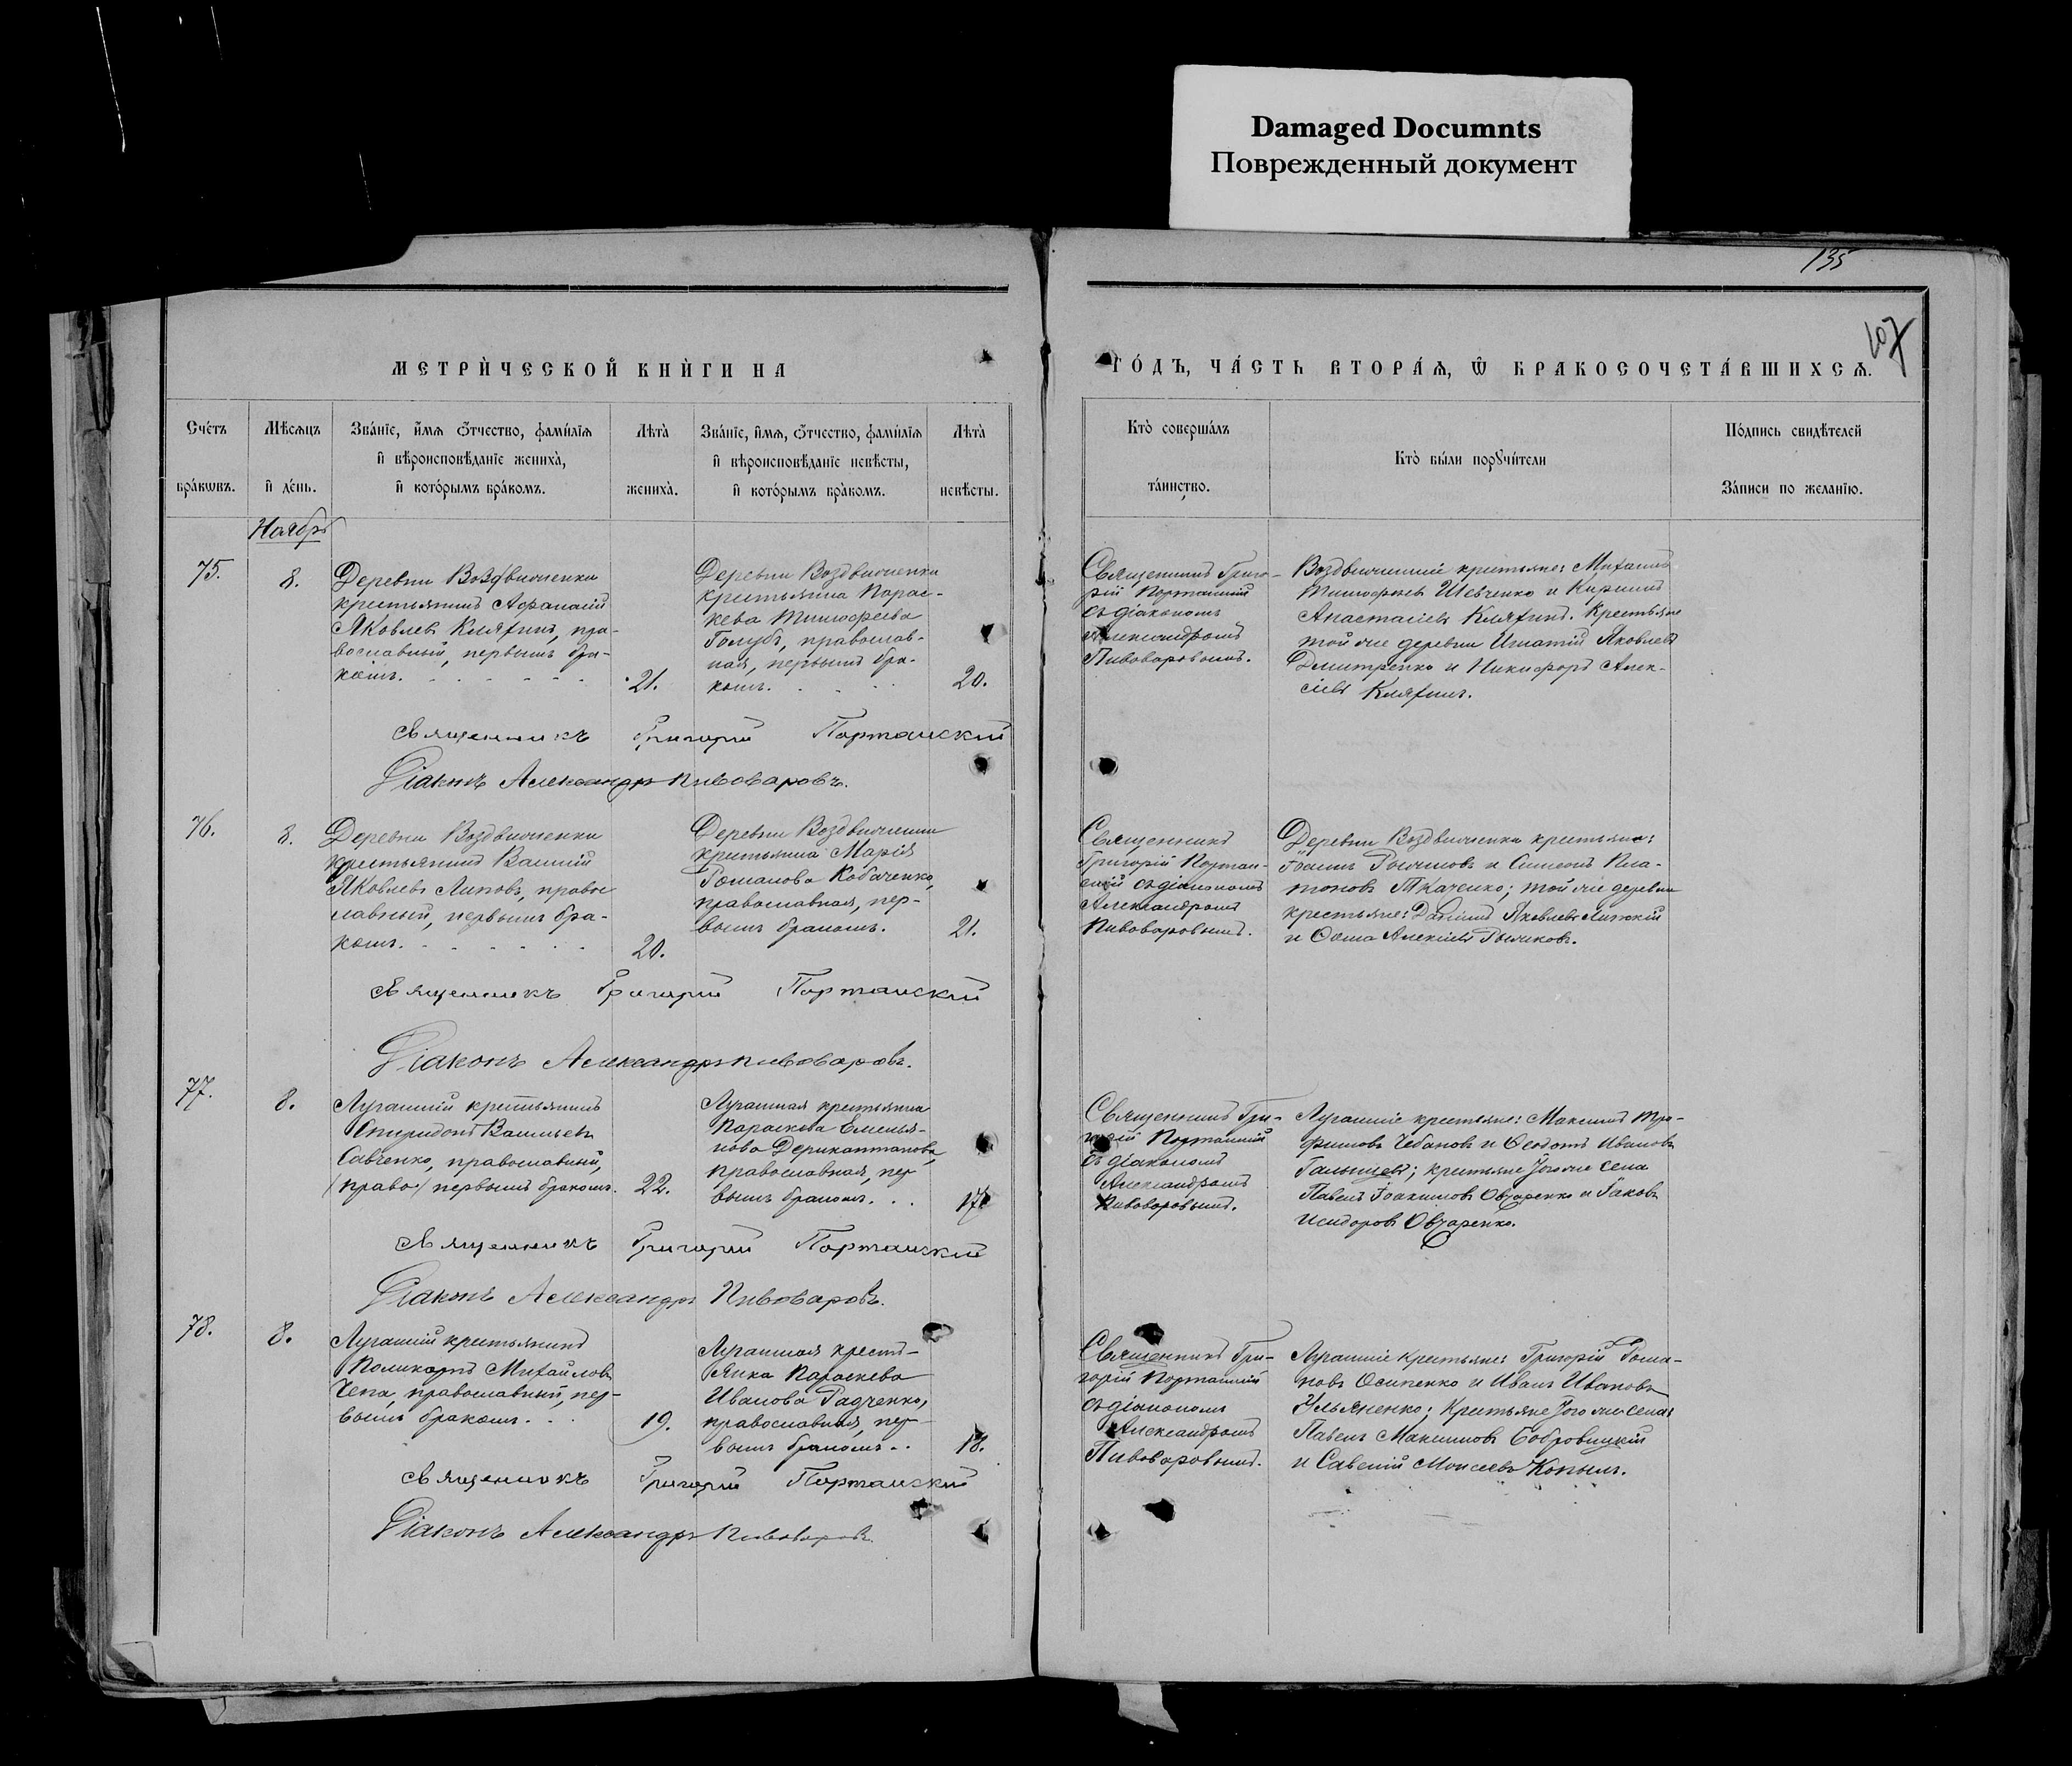 Damaged Documnts
Поврежденный документ
135
107
МЕТРИ́ЧЕСКОЙ КНИ́ГИ НА
ГО́ДЪ, ЧА́СТЬ ВТОРА́Ѧ, Ѿ БРАКОСОЧЕТА́ВШИХСѦ.
Сче́тъ бра́кѡвъ.
Мѣсѧцъ и҆ де́нь.
Зва́нїе, и҆́мѧ ѻ҆́тчество, фамѝлїѧ
и҆ вѣроисповѣ́данїе жениха̀,
и҆ кото́рымъ бра́комъ.
Лѣта̀ жениха̀.
Зва́нїе, и҆́мѧ, ѻ҆́тчество, фамѝлїѧ
и҆ вѣроисповѣ́данїе невѣ́сты,
и҆ кото́рымъ бра́комъ.
Лѣта̀ невѣ́сты.
Кто̀ соверша́лъ
та́инство.
Кто̀ бы́ли порꙋчи́тели
По́дпись свидѣ́телей
За́писи по жела́нїю.
Ноябрь
75.
8.
Деревни Воздвиженки
крестьянинъ Афанасій
Яковлевъ Кляхинъ, пра-
вославный, первымъ бра-
комъ.
21.
Деревни Воздвиженки
крестьянка Парас-
кева Тимофеева
Голубъ, православ-
ная, первымъ бра-
комъ.
20.
Священникъ Григо-
рій Портанскій
съ діакономъ
Александромъ
Пивоваровымъ.
Воздвиженскіе крестьяне: Михаилъ
Тимофеевъ Шевченко и Кириллъ
Анастасіевъ Кляхинъ. Крестьяне
той же деревни Игнатій Яковлевъ
Дмитренко и Никифоръ Алек-
сіевъ Кляхинъ.
Священникъ Григорій Портанскій
Діаконъ Александръ Пивоваровъ.
76.
8.
Деревни Воздвиженки
крестьянинъ Василій
Яковлевъ Липовъ, правос
лавный, первымъ бра-
комъ.
20.
Деревни Воздвиженки
крестьянка Марія
Романова Кобаченко,
православная, пер-
вымъ бракомъ.
21.
Священникъ
Григорій Портан-
скій съ діакономъ
Александромъ
Пивоваровымъ.
Деревни Воздвиженки крестьяне:
Іоаннъ и Симеонъ Пла-
тоновъ Ткаченко; той же деревни
крестьяне: Даніилъ Яковлевъ
и Ѳома Алексіевъ
Священникъ Григорій Портанскій
Діаконъ Александръ Пивоваровъ.
77.
8.
Луганскій крестьянинъ
Спиридонъ Васильевъ
Савченко, православный,
/право/ первымъ бракомъ.
22.
Луганская крестьянка
Параскева Емелья-
нова
православная, пер
вымъ бракомъ.
17
Священникъ Гри-
горій Портанскій
съ діакономъ
Александромъ
Пивоваровымъ.
Луганскіе крестьяне: Максимъ Тро-
фимовъ Чебановъ и Ѳеодотъ Ивановъ
Гальцевъ; крестьяне того же села
Павелъ Іоакимовъ Овчаренко и Іаковъ
Исидоровъ Овчаренко.
Священникъ Григорій Портанскій
Діаконъ Александръ Пивоваровъ.
78.
8.
Луганскій крестьянинъ
Поликарпъ Михайловъ
Чепа, православный, пер-
вымъ бракомъ.
19.
Луганская кресть-
янка Параскева
Иванова Радченко,
православная, пер-
вымъ бракомъ.
18.
Священникъ Гри-
горій Портанскій
съ діакономъ
Александромъ
Пивоваровымъ.
Луганскіе крестьяне: Григорій Рома-
новъ Осипенко и Иванъ Ивановъ
Ульяненко; крестьяне того же села:
Павелъ Максимовъ Бобровицкій
и Савелій Моисеевъ Копылъ.
Священникъ Григорій Портанскій
Діаконъ Александръ Пивоваровъ.